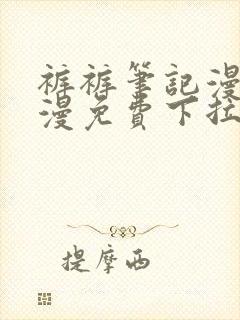 裤裤筆記漫
漫免費下拉
提摩西